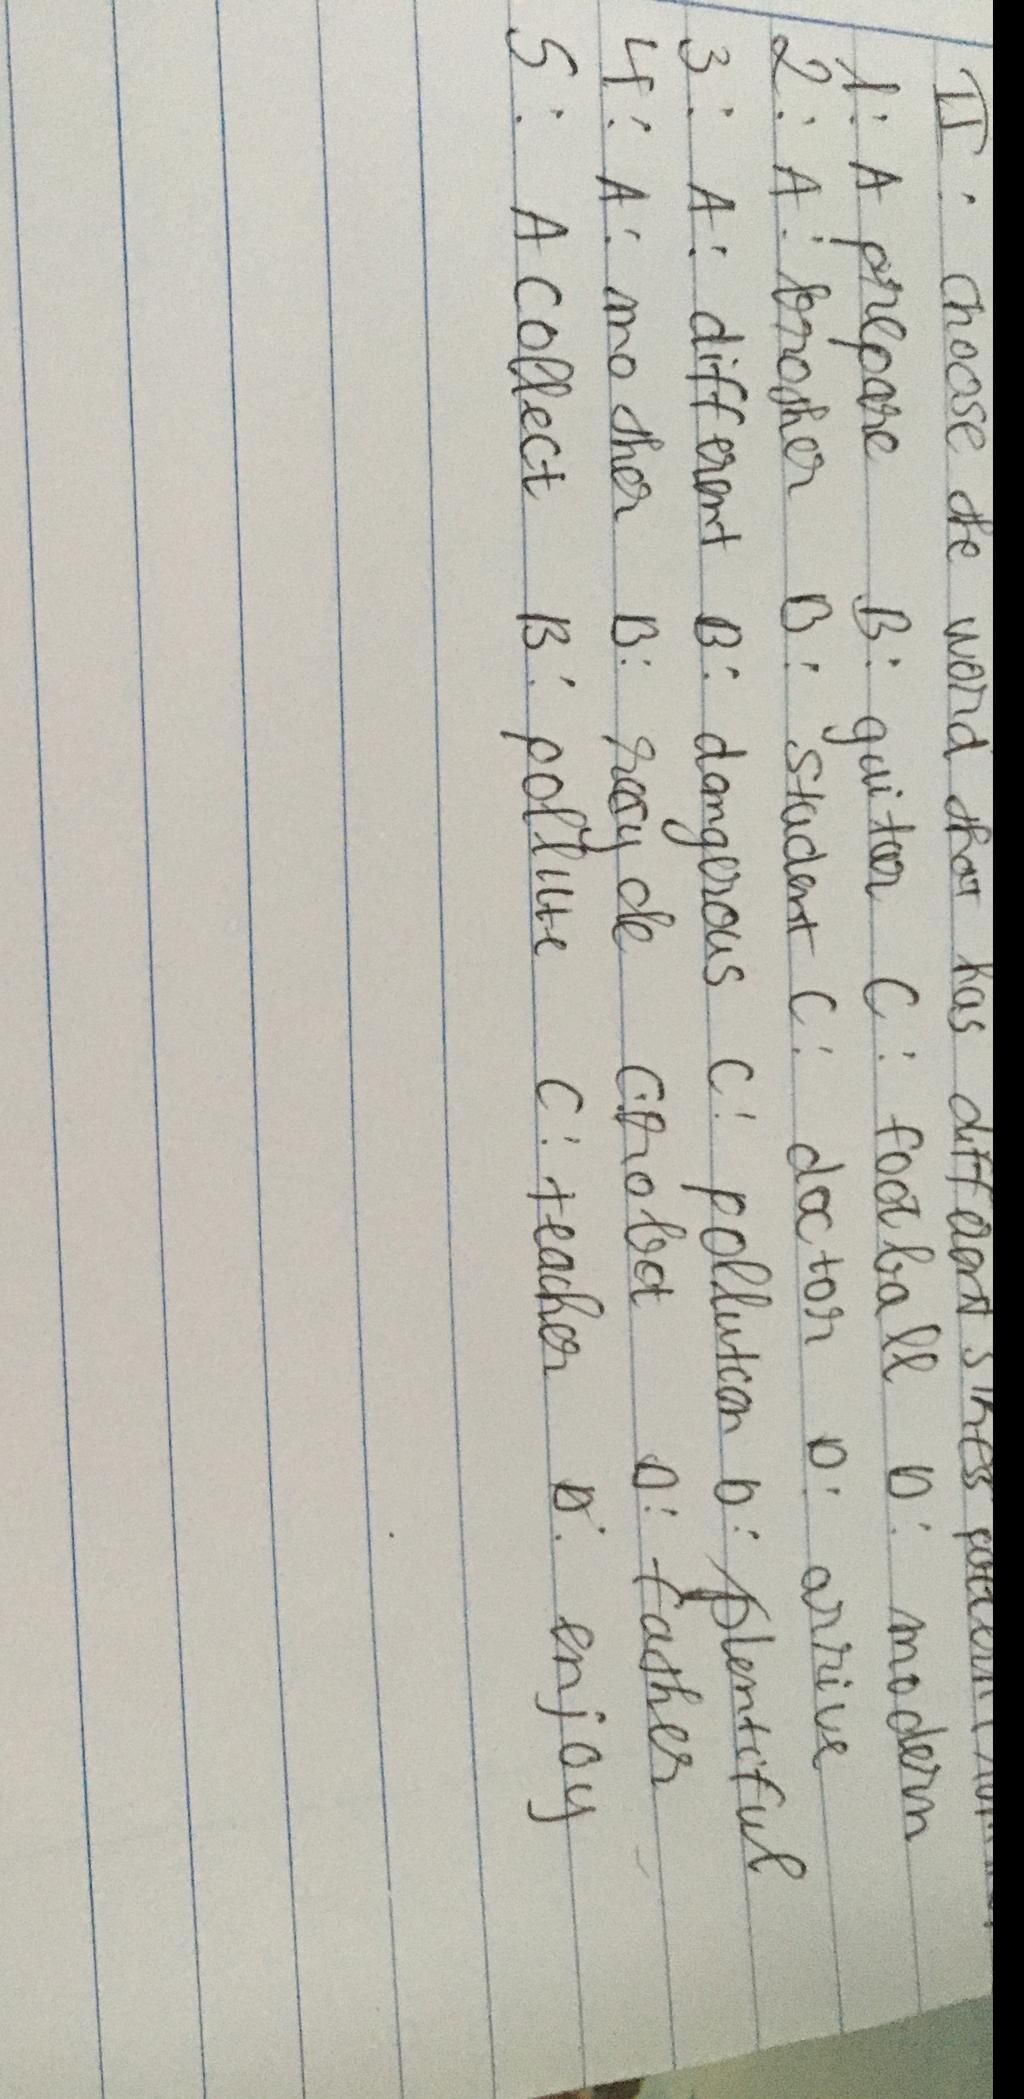 II. choose the word that has different stress pattern from
1: A prepare B: guitar C: football D: modern
2: A: brother B: student C: doctor D: arrive
3: A: different B: dangerous C: pollution D: plentiful
4: A: mother B: recycle C: robot D: father
5: A collect B: pollute C: teacher D: enjoy